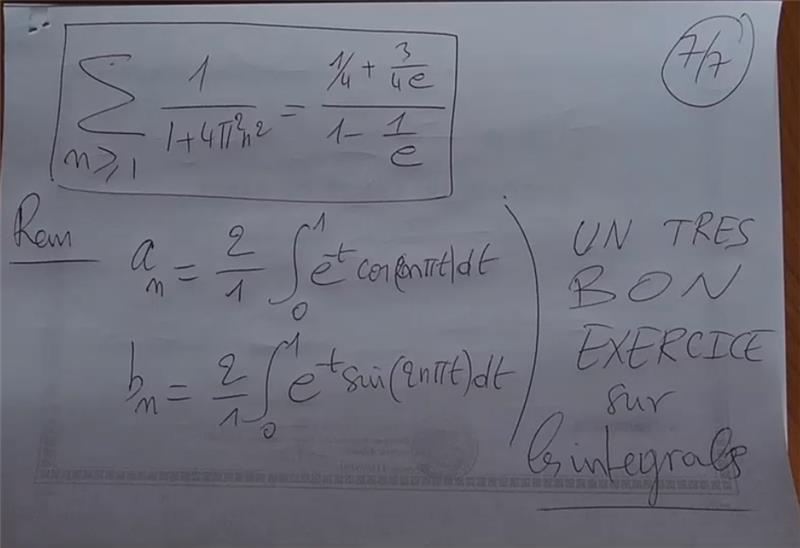 7/7
∑_{n≥1} 1/(1+4π²n²) = (1/4 + 3/(4e))/(1 - 1/e)
Rem
a_n = 2/1 ∫_0^1 e^{-t} cos(2nπt)dt
b_n = 2/1 ∫_0^1 e^{-t} sin(2nπt)dt
UN TRES
BON
EXERCICE
sur
les integrales